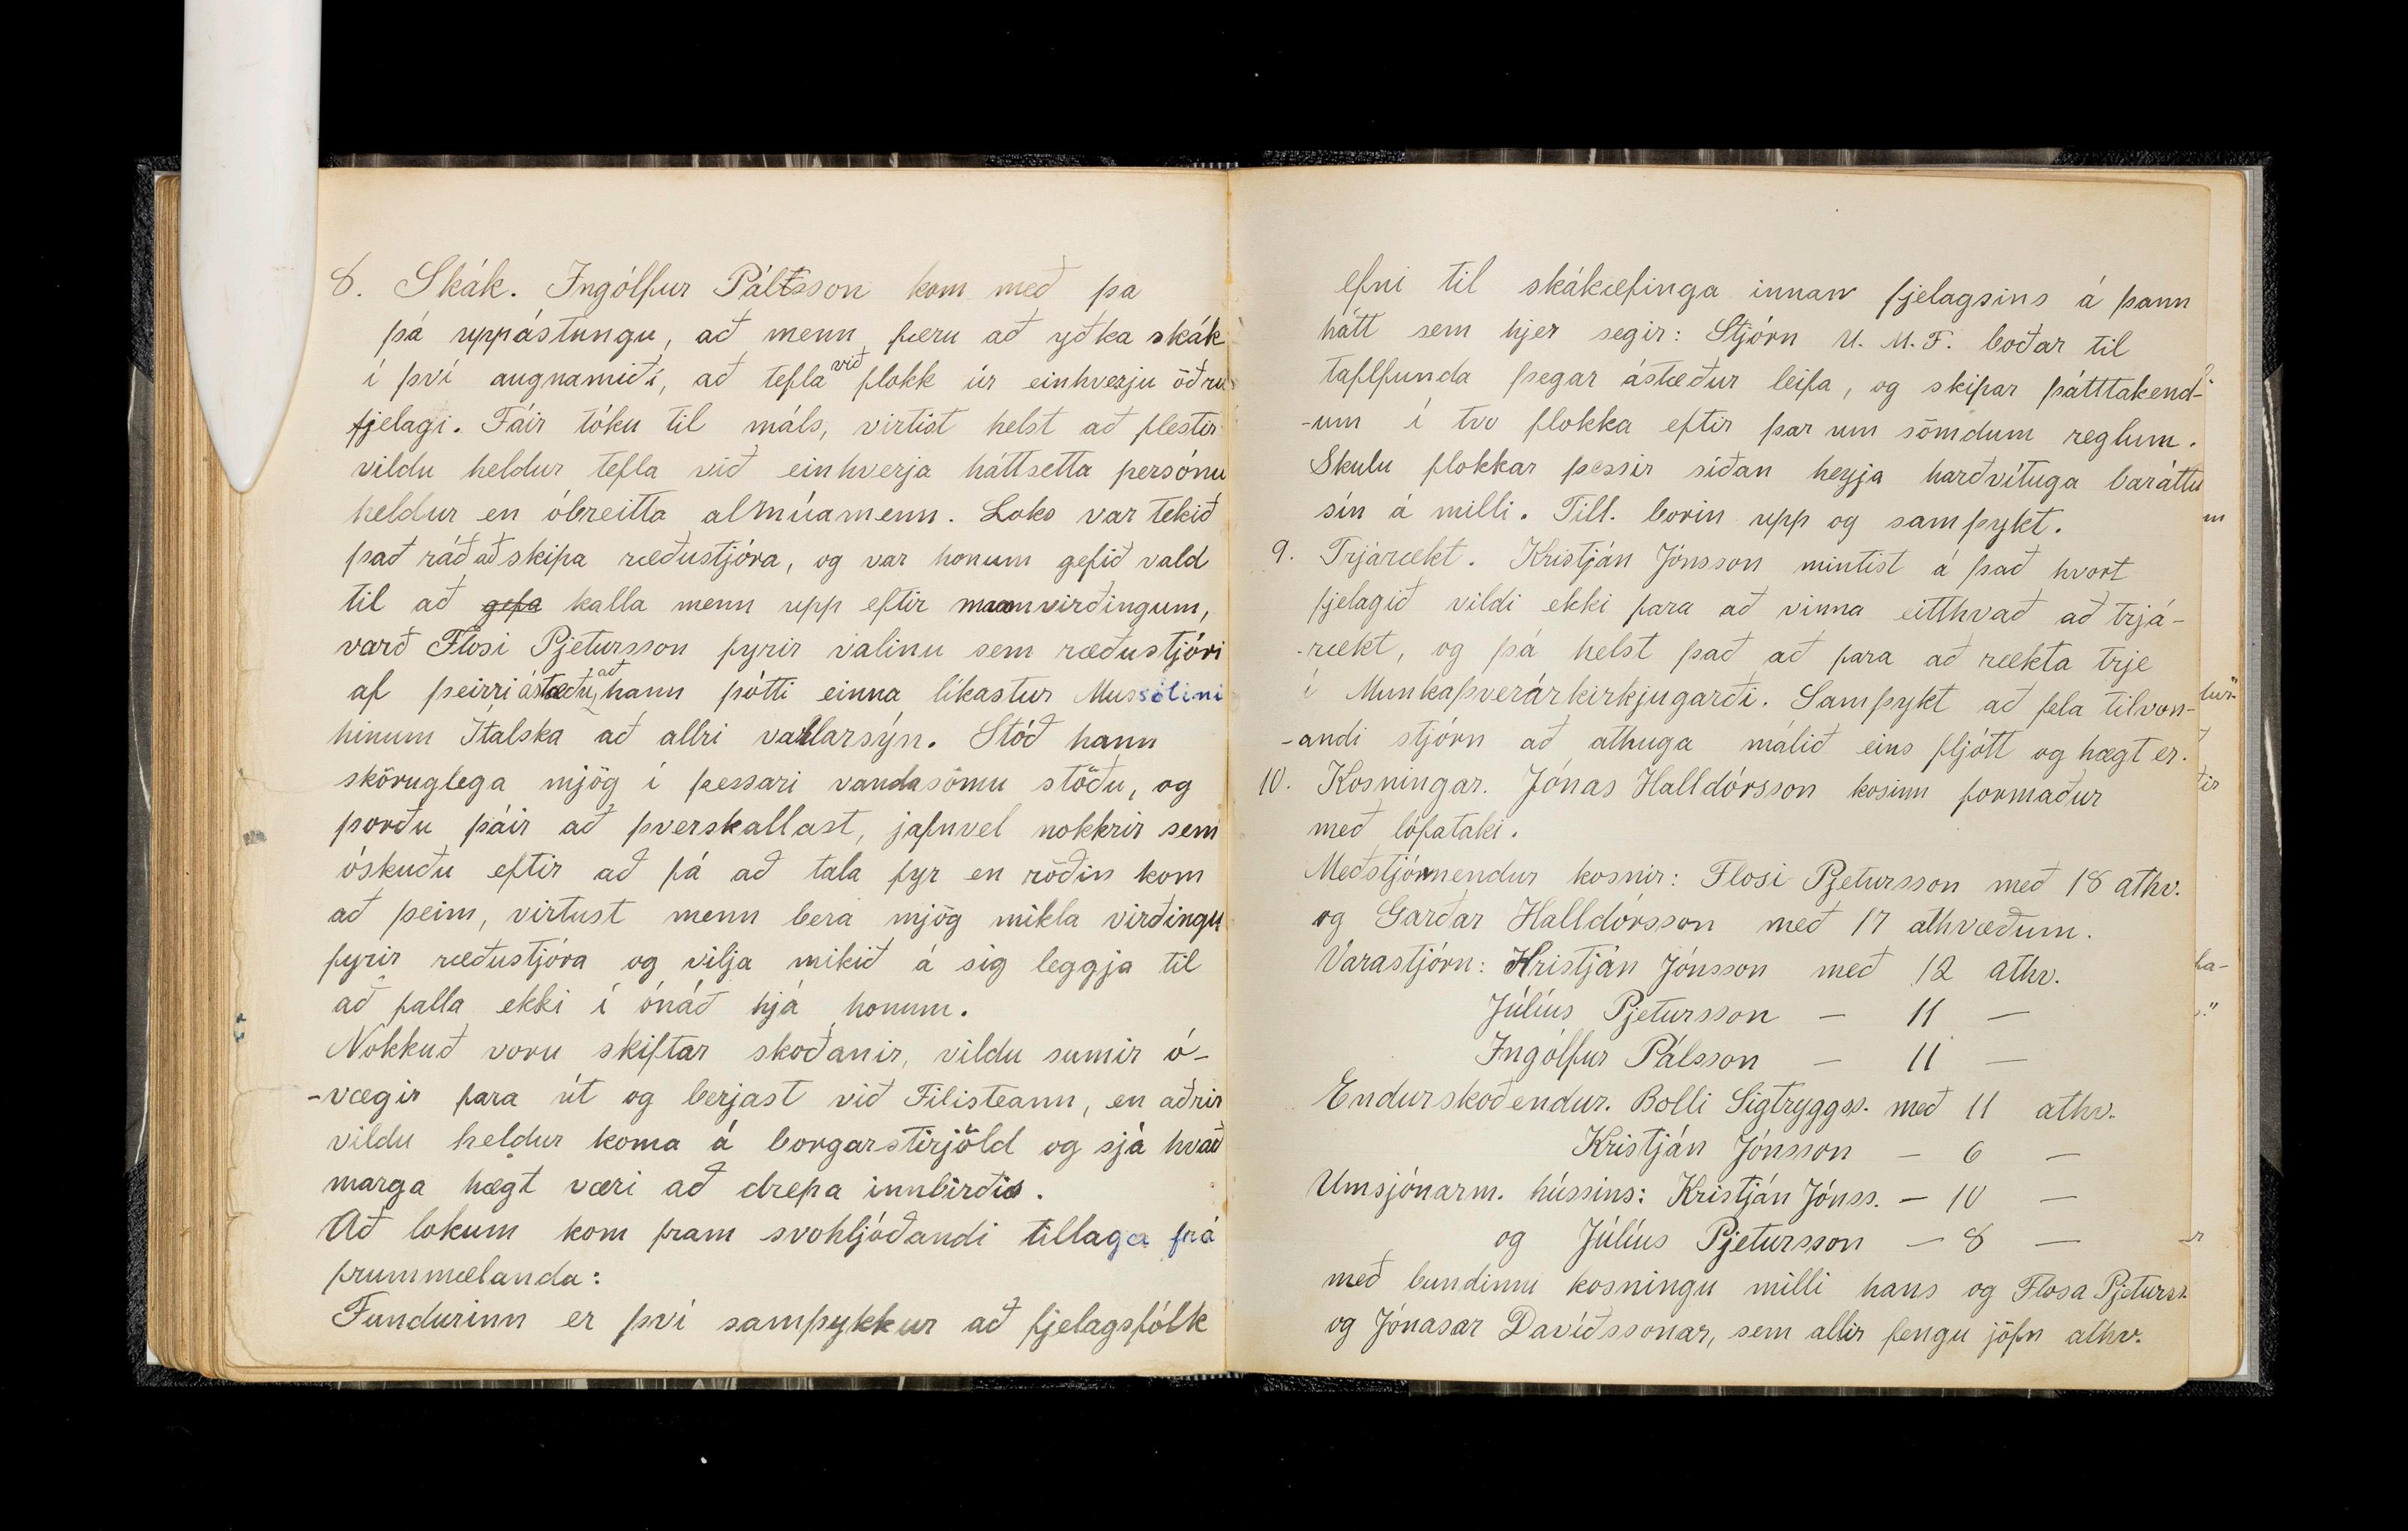 8. Skák. Ingólfur Pálsson kom með þa
þá uppástungu, að menn færu að yðka skák
í því augnamiði, að tefla við flokk úr einhverju öðru
fjelagi. Fáir tóku til máls, virtist helst að flestir
vildu heldur tefla við einhverja háttsetta persónu
heldur en óbreitta almúamenn. Loks var tekið
það ráð að skipa ræðustjóra, og var honum gefið vald
til að gefa kalla menn upp eftir mannvirðingum,
varð Flosi Pjetursson fyrir valinu sem ræðustjóri
af þeirri ástæðu, að hann þótti einna líkastur Mussolini
hinum Ítalska að allri vallarsýn. Stóð hann
sköruglega mjög í þessari vandasömu stöðu, og
þorðu fáir að þverskallast, jafnvel nokkrir sem
óskuðu eftir að fá að tala fyr en röðin kom
að þeim, virtust menn bera mjög mikla virðingu
fyrir ræðustjóra og vilja mikið á sig leggja til
að falla ekki í ónáð hjá honum.
Nokkuð voru skiftar skoðanir, vildu sumir ó-
-vægir fara út og berjast við Filisteann, en aðrir
vildu heldur koma á borgarstirjöld og sjá hvað
marga hægt væri að drepa innbirðis.
Að lokum kom fram svohljóðandi tillaga frá
frummælanda:
Fundurinn er því samþykkur að fjelagsfólk
efni til skákæfinga innan fjelagsins á þann
hátt sem hjer segir: Stjórn U. M. F. boðar til
taflfunda þegar ástæður leifa, og skipar þátttakend-
-um í tvo flokka eftir þar um sömdum reglum.
Skulu flokkar þessir síðan heyja harðvítuga baráttu
sín á milli. Till. borin upp og samþykt.
9. Trjárækt. Kristján Jónsson mintist á það hvort
fjelagið vildi ekki fara að vinna eitthvað að trjá-
-rækt, og þá helst það að fara að rækta trje
í Munkaþverárkirkjugarði. Samþykt að fela tilvon-
-andi stjórn að athuga málið eins fljótt og hægt er.
10. Kosningar. Jónas Halldórsson kosinn formaður
með lófataki.
Meðstjórnendur kosnir: Flosi Pjetursson með 18 athv.
og Garðar Halldórsson með 17 athvæðum.
Varastjórn: Kristján Jónsson með 12 athv.
Júlíus Pjetursson — 11 —
Ingólfur Pálsson — 11 —
Endurskoðendur. Bolli Sigtryggss. með 11 athv.
Kristján Jónsson — 6 —
Umsjónarm. hússins: Kristján Jónss. — 10 —
og Júlíus Pjetursson — 8 —
með bundinni kosningu milli hans og Flosa Pjeturss.
og Jónasar Davíðssonar, sem allir fengu jöfn athv.